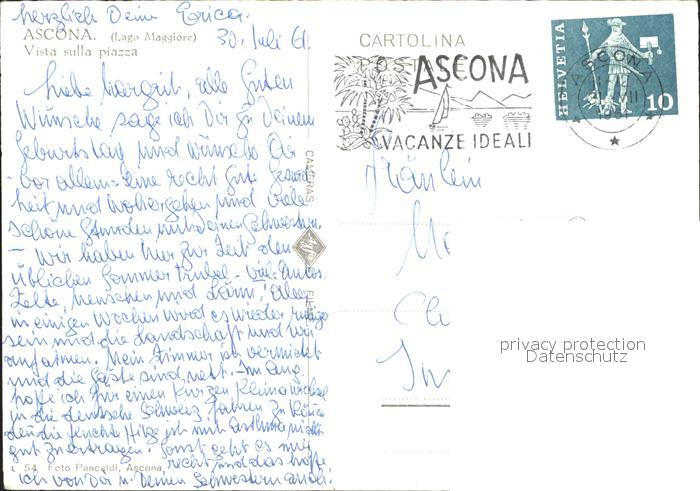 herzlich Deine Erica.
ASCONA. (Lago Maggiore)
Vista sulla piazza
30. Juli 61
Liebe Margrit, alle Guten
Wünsche sage ich Dir zu Deinem
Geburtstag und wünsche Dir
vor allem eine recht gute Gesund
heit und Wohlergehen und viele
schöne Stunden mit deinen Schwestern.
– Wir haben hier zur Zeit den
üblichen Sommertrubel – viele Autos,
Zelte, Menschen und Lärm! Aber
in einigen Wochen wird es wieder ruhig
sein und die Landschaft und wir
aufatmen. Mein Zimmer ist vermietet
und die Gäste sind nett. Im Aug.
hoffe ich für einen kurzen Klimawechsel
in die deutsche Schweiz fahren zu können
denn die feuchte Hitze ist mit Asthma nicht
gut zu ertragen. Sonst geht es mir
recht und das hoffe
ich von Dir u. Deinen Schwestern auch!
54 Foto Pancaldi, Ascona
CAMERAS
FILM
CARTOLINA
POSTALE
ASCONA
VACANZE IDEALI
ASCONA
HELVETIA
10
Fräulein
privacy protection
Datenschutz